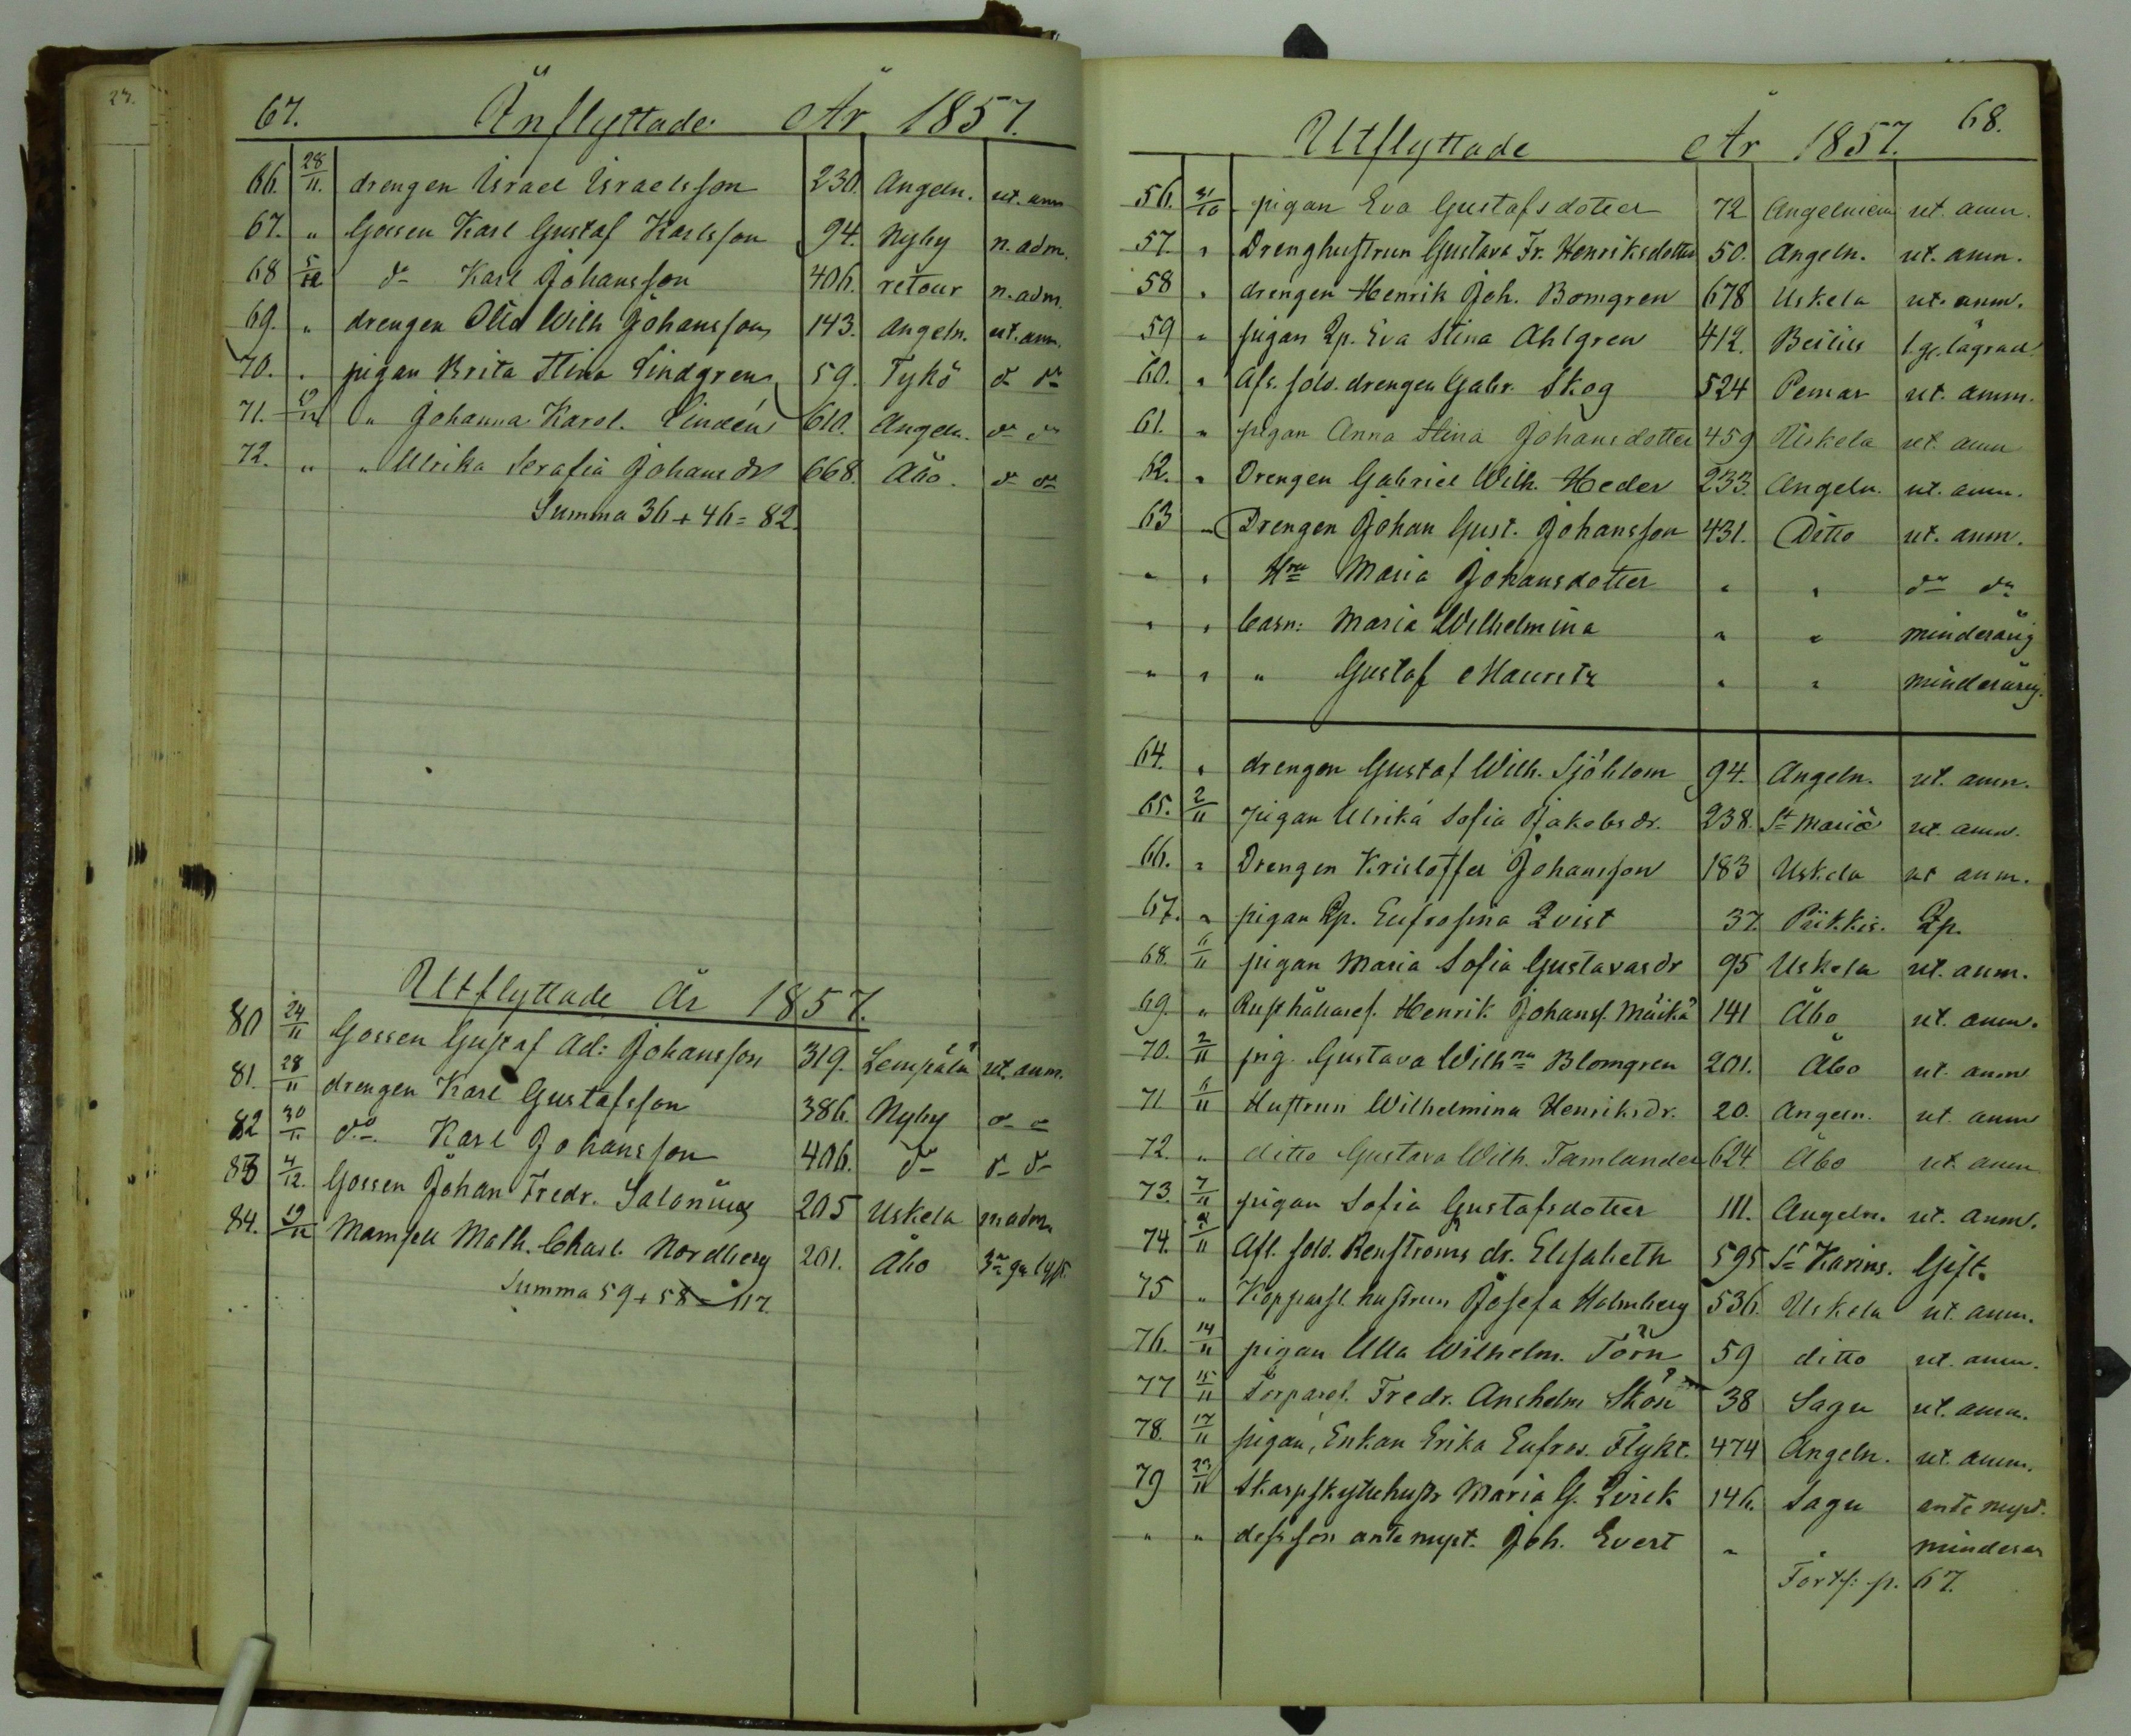 67. Inflyttade År 1857.
66. 28/11. drengen Israel Israelsson 230. Angeln. ut. anm
67. " Gossen Karl Gustaf Karlsson 94. Nyby n. adm.
68 5/12 do Karl Johansson 406. retour n. adm.
69. " drengen Otto Wilh Johansson 143. Angeln. ut. anm.
70. " pigan Brita Stina Lindgren 59. Tykö do do
71. /12 " Johanna Karol. Lindén 610. Angeln. do do
72. " " Ulrika Serafia Johansdr 668. Åbo. do do
Summa 36 + 46 = 82.
Utflyttade År 1857.
80 24/11 Gossen Gustaf Ad: Johansson 319. Lempälä ut. anm.
81. 28/11 drengen Karl Gustafsson 386. Nyby do do
82 30/11 do Karl Johansson 406. do do do
83 4/12. Gossen Johan Fredr. Salonius 205 Uskela n. adm.
84. 19/12 Mamsell Math. Charl. Nordberg 201. Åbo 3ne gr lyst.
Summa 59 + 58 = 117.
Utflyttade År 1857. 68.
56. 31/10 pigan Eva Gustafsdotter 72 Angelniemi ut. anm.
57. " Drenghustrun Gustava Fr. Henriksdotter 50. Angeln. ut. anm.
58 " drengen Henrik Joh. Bomgren 678 Uskela ut. anm.
59 " pigan Qp. Eva Stina Ahlgren 412. 
60. " Afs. sold. drengen Gabr. Skog 524 Pemar ut. anm.
61. " pigan Anna Stina Johansdotter 459 Uskela ut. anm
62. " Drengen Gabriel Wilh. Heder 233. Angeln. ut. anm.
63 " Drengen Johan Gust. Johansson 431. Ditto ut. anm.
" " Hru Maria Johansdotter " " do do
" " barn: Maria Wilhelmina " " minderårig
" " " Gustaf Mauritz " " minderårig.
64. " drengen Gustaf Wilh. Sjöblom 94. Angeln. ut. anm.
65. 2/11 pigan Ulrika Sofia Jakobsdr. 238. St Mariæ ut. anm.
66. " Drengen Kristoffer Johansson 183 Uskela ut anm.
67. " pigan Qp. Eufrosina Qvist 37. Piikkis. Qp.
68. 6/11 pigan Maria Sofia Gustavasdr 95 Uskela ut. anm.
69. " Rusthållaref. Henrik Johanss. Märkä 141 Åbo ut. anm.
70. 2/11 pig. Gustava Wilhna Blomgren 201. Åbo ut. anm
71 6/11 Hustrun Wilhelmina Henriksdr. 20. Angeln. ut. anm
72. " ditto Gustava Wilh. Tamlander 624 Åbo ut. anm
73. 7/11 pigan Sofia Gustafsdotter 111. Angeln. ut. anm.
74. /11 Afl. sold. Renströms dr. Elisabeth 595 St Karins. Gift.
75 " Kopparsl. hustrun Josefa Holmberg 536. Uskela ut. anm.
76. 14/11 pigan Ulla Wilhelm. Törn 59 ditto ut. anm.
77 15/11 Torpares. Fredr. Anshelm Skön 38 Sagu ut. anm.
78. 17/11 pigan, Enkan Erika Eufros. Flykt. 474 Angeln. ut. anm.
79 23/11 Skarpskyttehustr Maria G. Qvick 146. Sagu ante nupt.
" " dess son ante nupt. Joh. Evert " " minderår
Forts: p. 67.